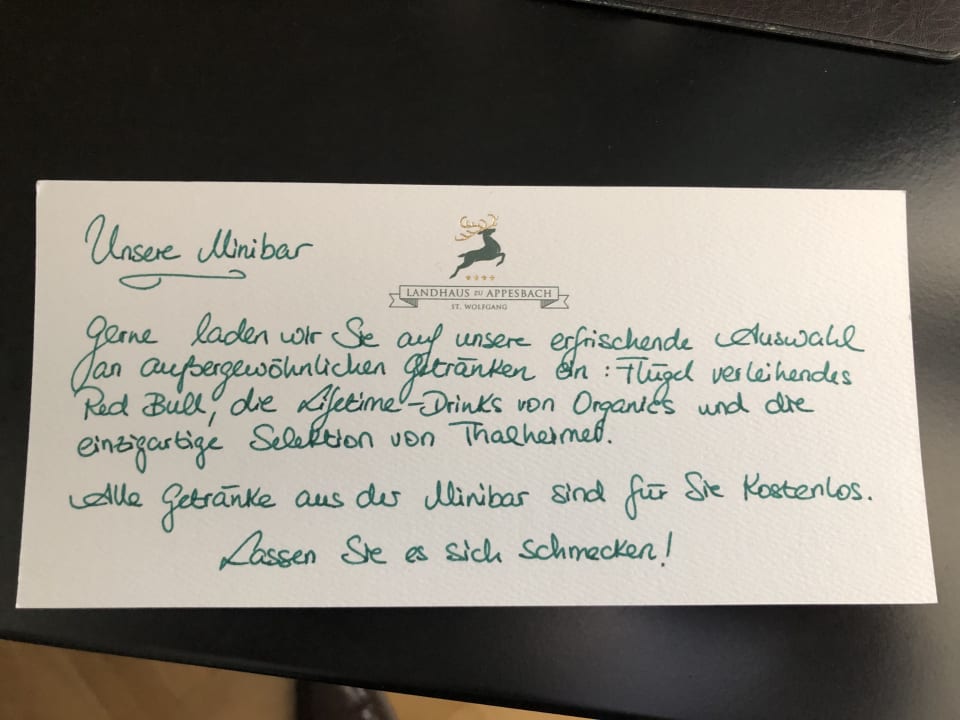 Unsere Minibar
LANDHAUS ZU APPESBACH
ST. WOLFGANG
Gerne laden wir Sie auf unsere erfrischende Auswahl
an außergewöhnlichen Getränken ein: Flügel verleihendes
Red Bull, die Lifetime-Drinks von Organics und die
einzigartige Selektion von Thalheimer.
Alle Getränke aus der Minibar sind für Sie kostenlos.
Lassen Sie es sich schmecken!